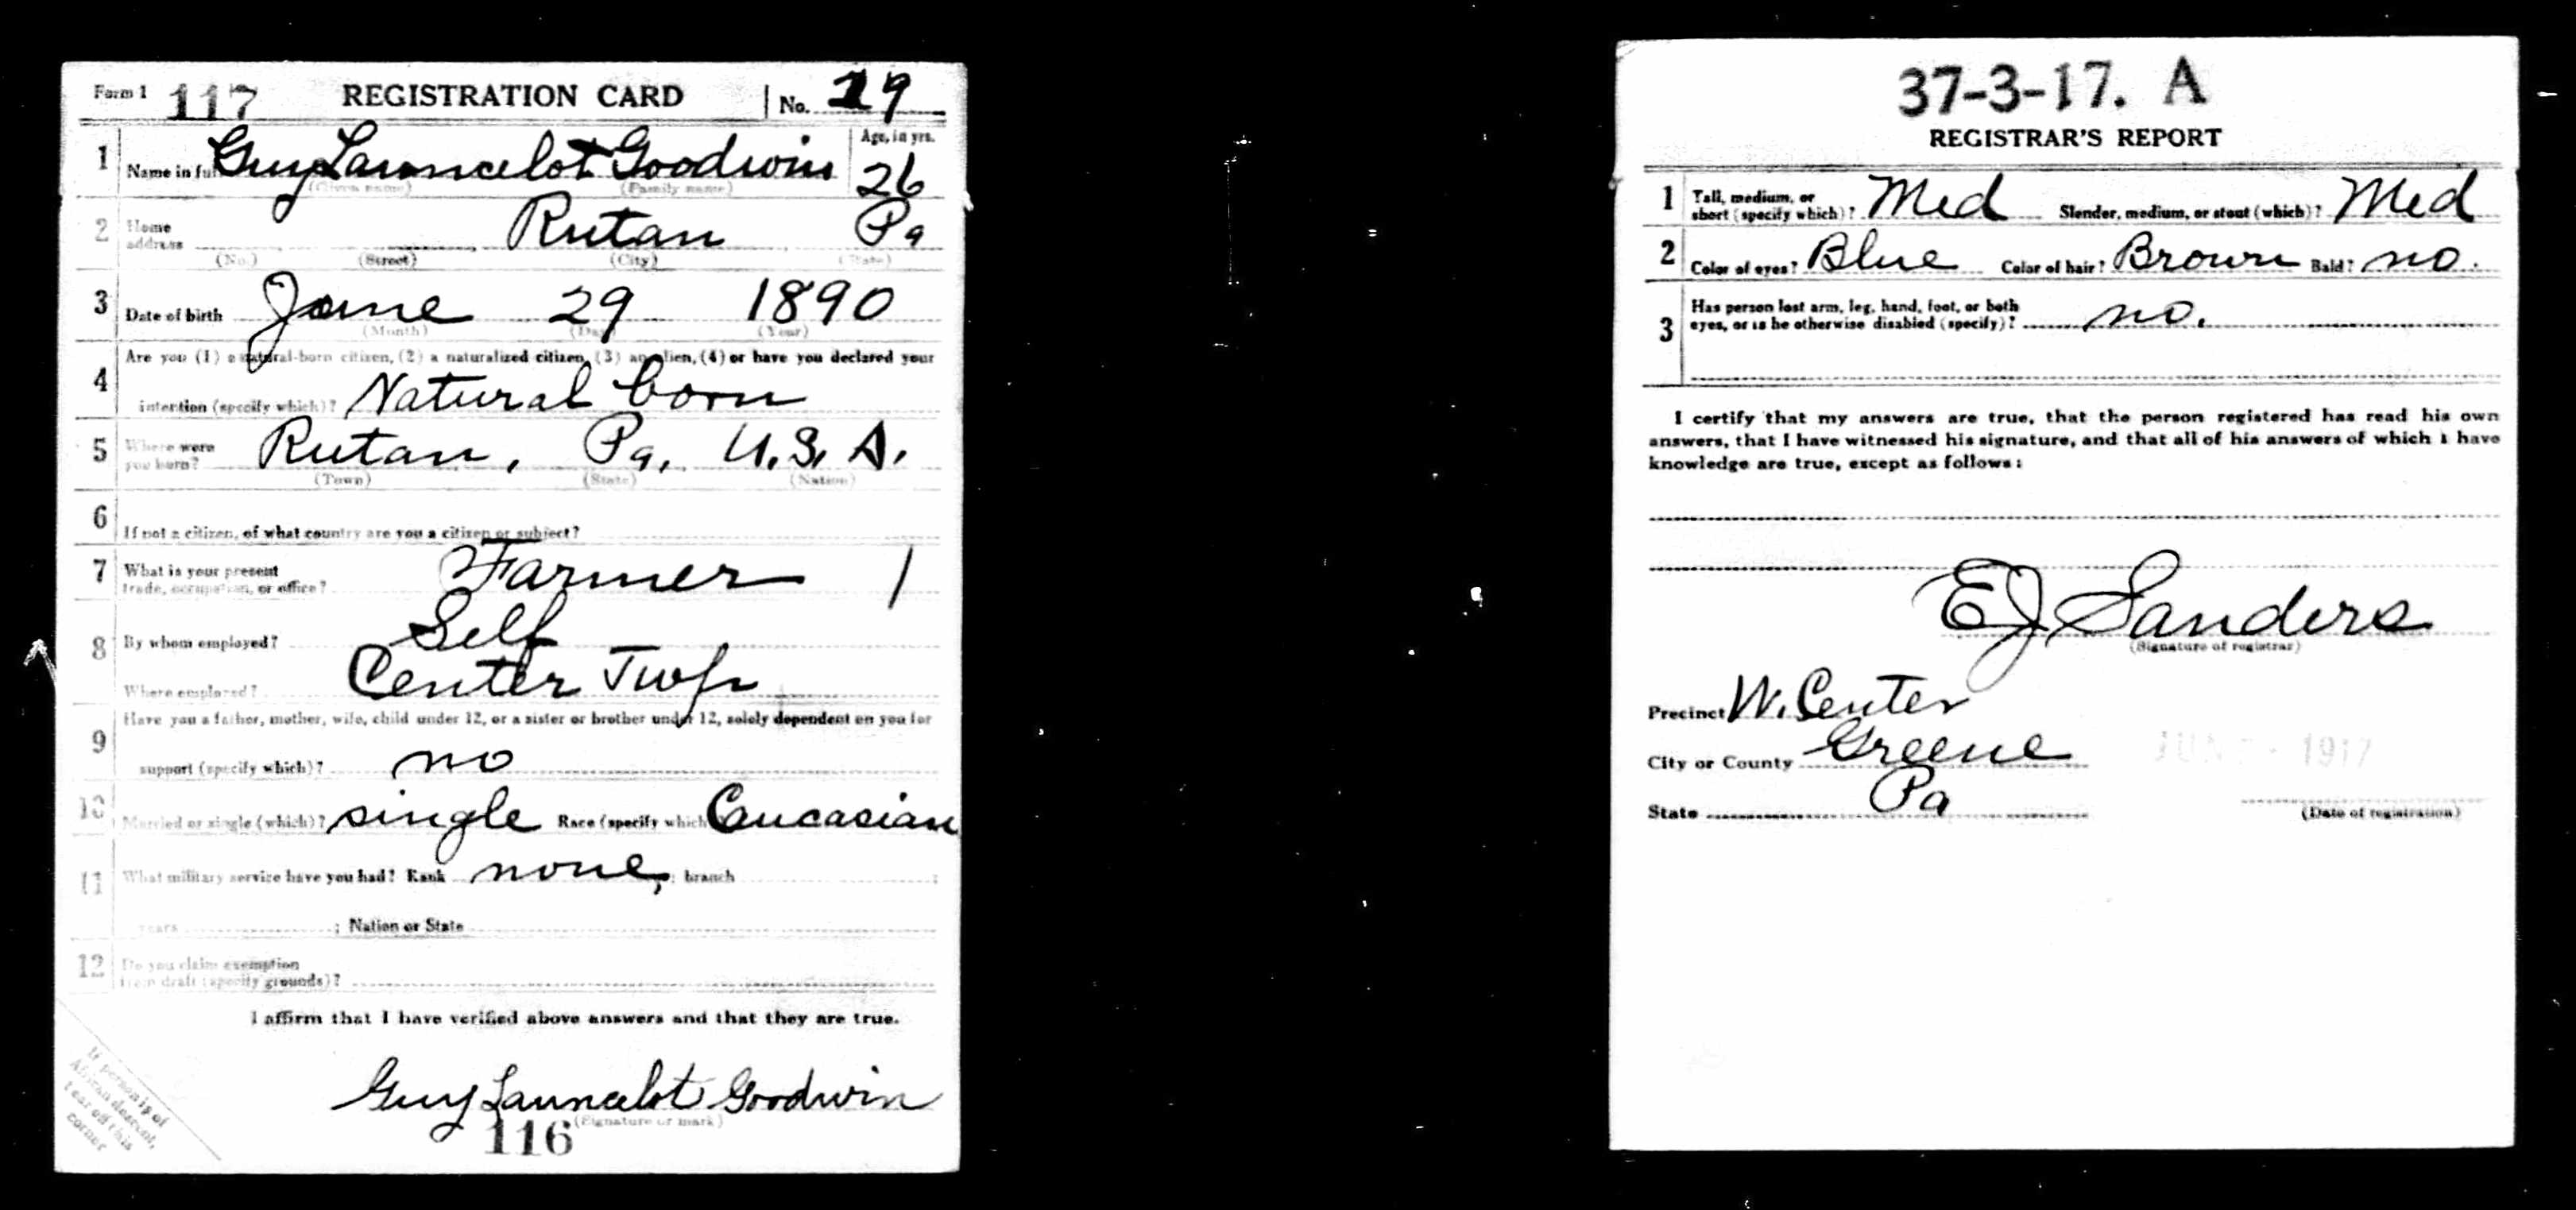 Form 1 117 REGISTRATION CARD No. 29
1 Name in full Guy Launcelot Goodwin Age, in yrs. 26
(Given name) (Family name)
2 Home address Rutan Pa
(No.) (Street) (City) (State)
3 Date of birth June 29 1890
(Month) (Day) (Year)
Are you (1) a natural-born citizen, (2) a naturalized citizen, (3) an alien, (4) or have you declared your
4 intention (specify which)? Natural born
5 Where were you born? Rutan, Pa, U.S.A.
(Town) (State) (Nation)
6 If not a citizen, of what country are you a citizen or subject?
7 What is your present trade, occupation, or office? Farmer 1
8 By whom employed? Self
Where employed? Center Twp
Have you a father, mother, wife, child under 12, or a sister or brother under 12, solely dependent on you for
9 support (specify which)? no
10 Married or single (which)? single Race (specify which) Caucasian
11 What military service have you had? Rank none, ; branch ;
years ; Nation or State
12 Do you claim exemption
from draft (specify grounds)?
I affirm that I have verified above answers and that they are true.
Guy Launcelot Goodwin
(Signature or mark)
116
If person is of
African descent,
tear off this
corner
37-3-17. A
REGISTRAR'S REPORT
1 Tall, medium, or short (specify which)? Med Slender, medium, or stout (which)? Med
2 Color of eyes? Blue Color of hair? Brown Bald? no.
3 Has person lost arm, leg, hand, foot, or both
eyes, or is he otherwise disabled (specify)? no.
I certify that my answers are true, that the person registered has read his own
answers, that I have witnessed his signature, and that all of his answers of which I have
knowledge are true, except as follows:
EJ Sanders
(Signature of registrar)
Precinct W. Center
City or County Greene JUN 1917
State Pa
(Date of registration)